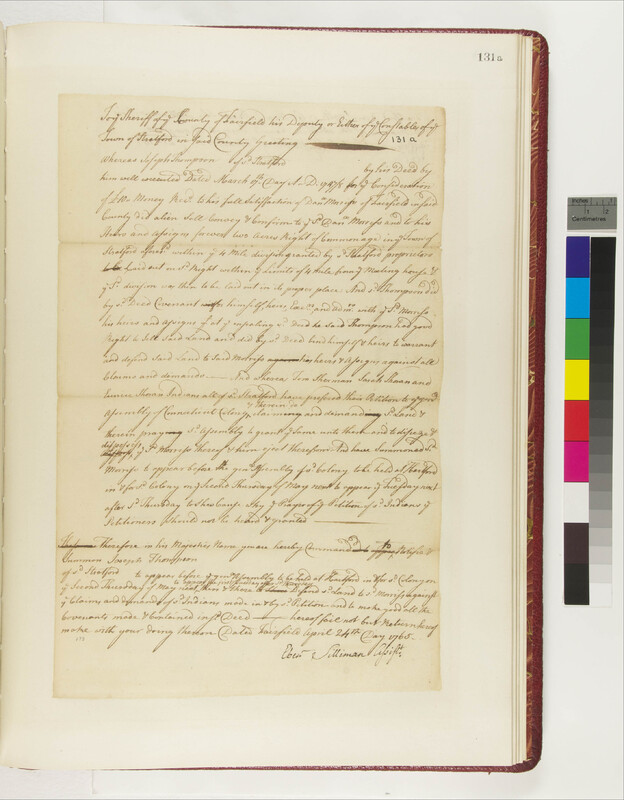 131a
To yᵉ Sheriff of yᵉ County of Fairfield his Deputy or Either of yᵉ Constables of yᵉ
Town of Stratford in said County Greeting
131a
Whereas Joseph Thompson of sᵈ Stratford by his Deed by
him well executed Dated March yᵉ Day A. D. for yᵉ Consideration
of Money Recᵈ to his full Satisfaction of Danˡ Morriss of Fairfield in said
County did alien Sell Convey & Confirm to yᵉ sᵈ Danˡ Morriss and to his
Heirs and assigns forever two acres Right of Commonage in yᵉ Town of
Stratford within yᵉ 4 Mile division granted by yᵉ Stratford proprietors
to be Laid out in sᵈ Right within yᵉ limits of 4 mile from yᵉ Meeting house &
yᵉ sᵈ division was then to be laid out in its proper place And sᵈ Thompson did
by sᵈ Deed Covenant himself, heirs, Exʳˢ and Adᵐʳˢ with yᵉ sᵈ Morriss
his heirs and assigns yᵗ at yᵉ ensealing sᵈ Deed he said Thompson had good
Right to Sell Said Land and did by sᵈ Deed bind himself & heirs to warrant
and defend said Land to said Morriss his heirs & Assigns against all
Claims and demands And whereas Tom Sherman Sarah Shoran and
Eunice Shoran Indians all of sᵈ Stratford have preferred their Petition to yᵉ genˡˡ
& therein is
Assembly of Connecticut Colony, claiming and demanding sᵈ Land &
therein praying sᵈ Assembly to grant yᵉ same unto them and to disseize &
dispossess yᵉ sᵈ Morriss thereof & him eject therefrom And have Summoned sᵈ
Morriss to appear before the genˡˡ Assembly of sᵈ Colony to be held at Hartford
in & for sᵈ Colony on yᵉ Second Thursday of May next to appear yᵉ Tuesday next
after sᵈ Thursday to Shew Cause why yᵉ Prayer of yᵉ Petition of sᵈ Indians yᵉ
Petitioners should not be heard & granted
These are therefore in his Majesties Name you are hereby Commanded to Notifie &
Summon Joseph Thompson
of sᵈ Stratford to appear before yᵉ genˡˡ Assembly to be held at Hartford in & for sᵈ Colony on
yᵉ Second Thursday of May next then & there to Defend sᵈ Land to sᵈ Morriss against
yᵉ Claims and demands of sᵈ Indians made in & by sᵈ Petition and to make good all the
Covenants made & Contained in sᵈ Deed hereof fail not but Return hereof
make with your doing thereon Dated Fairfield April 24ᵗʰ Day 1765.
Ebenʳ Silliman Assistᵗ
Centimetres
1 2